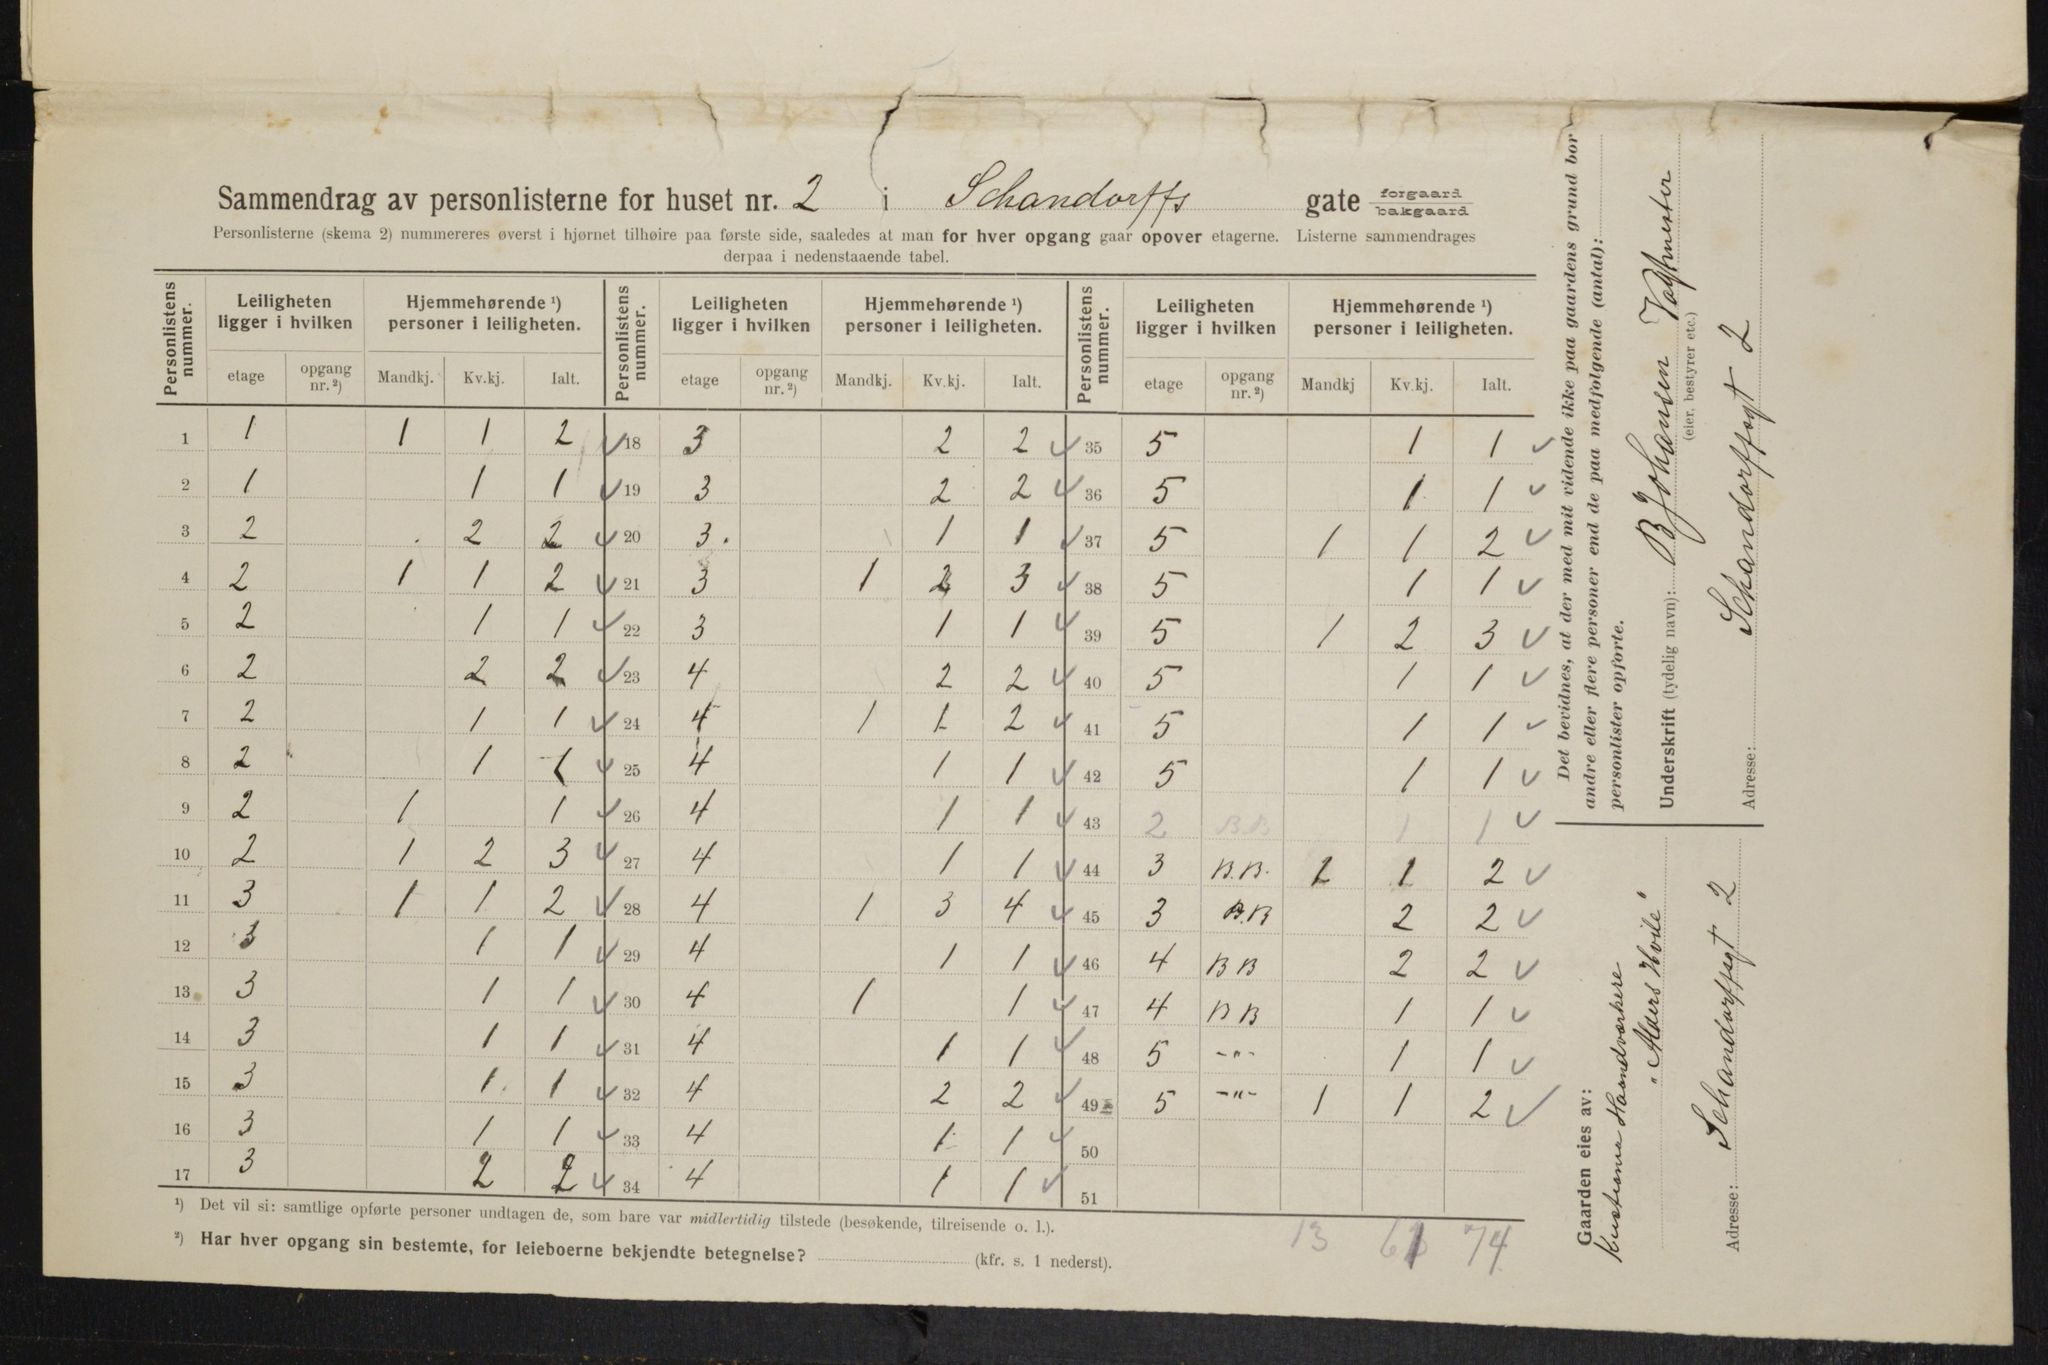 Sammendrag av personlisterne for huset nr. 2 i Schandorffs gate forgaard bakgaard
Personlisterne (skema 2) nummereres øverst i hjørnet tilhøire paa første side, saaledes at man for hver opgang gaar opover etagerne. Listerne sammendrages
derpaa i nedenstaaende tabel.
Personlistens nummer. Leiligheten ligger i hvilken Hjemmehørende ¹) personer i leiligheten. Personlistens nummer. Leiligheten ligger i hvilken Hjemmehørende ¹) personer i leiligheten. Personlistens nummer. Leiligheten ligger i hvilken Hjemmehørende ¹) personer i leiligheten.
etage opgang nr. ²) Mandkj. Kv.kj. Ialt. etage opgang nr. ²) Mandkj. Kv.kj. Ialt. etage opgang nr. ²) Mandkj Kv.kj. Ialt.
1 1 1 1 2 ✓ 18 3 2 2 ✓ 35 5 1 1 ✓
2 1 1 1 ✓ 19 3 2 2 ✓ 36 5 1 1 ✓
3 2 2 2 ✓ 20 3. 1 1 ✓ 37 5 1 1 2 ✓
4 2 1 1 2 ✓ 21 3 1 2 3 ✓ 38 5 1 1 ✓
5 2 1 1 ✓ 22 3 1 1 ✓ 39 5 1 2 3 ✓
6 2 2 2 ✓ 23 4 2 2 ✓ 40 5 1 1 ✓
7 2 1 1 ✓ 24 4 1 1 2 ✓ 41 5 1 1 ✓
8 2 1 1 ✓ 25 4 1 1 ✓ 42 5 1 1 ✓
9 2 1 1 ✓ 26 4 1 1 ✓ 43 2 B.B 1 1 ✓
10 2 1 2 3 ✓ 27 4 1 1 ✓ 44 3 B.B. 1 1 2 ✓
11 3 1 1 2 ✓ 28 4 1 3 4 ✓ 45 3 B.B 2 2 ✓
12 3 1 1 ✓ 29 4 1 1 ✓ 46 4 B B 2 2 ✓
13 3 1 1 ✓ 30 4 1 1 ✓ 47 4 B B 1 1 ✓
14 3 1 1 ✓ 31 4 1 1 ✓ 48 5 -"- 1 1 ✓
15 3 1 1 ✓ 32 4 2 2 ✓ 49 5 -"- 1 1 2 ✓
16 3 1 1 ✓ 33 4 1 1 ✓ 50
17 3 2 2 ✓ 34 4 1 1 ✓ 51
13 61 74
¹) Det vil si: samtlige opførte personer undtagen de, som bare var midlertidig tilstede (besøkende, tilreisende o. l.).
²) Har hver opgang sin bestemte, for leieboerne bekjendte betegnelse? (kfr. s. 1 nederst).
Det bevidnes, at der med mit vidende ikke paa gaardens grund bor
andre eller flere personer end de paa medfølgende (antal):
personlister opførte.
Underskrift (tydelig navn): B Johansen Vagtmester
(eier, bestyrer etc.)
Adresse: Schandorffsgt 2
Gaarden eies av:
Kristiania Haandværkere
"Alders Hvile"
Adresse: Schandorffsgt 2